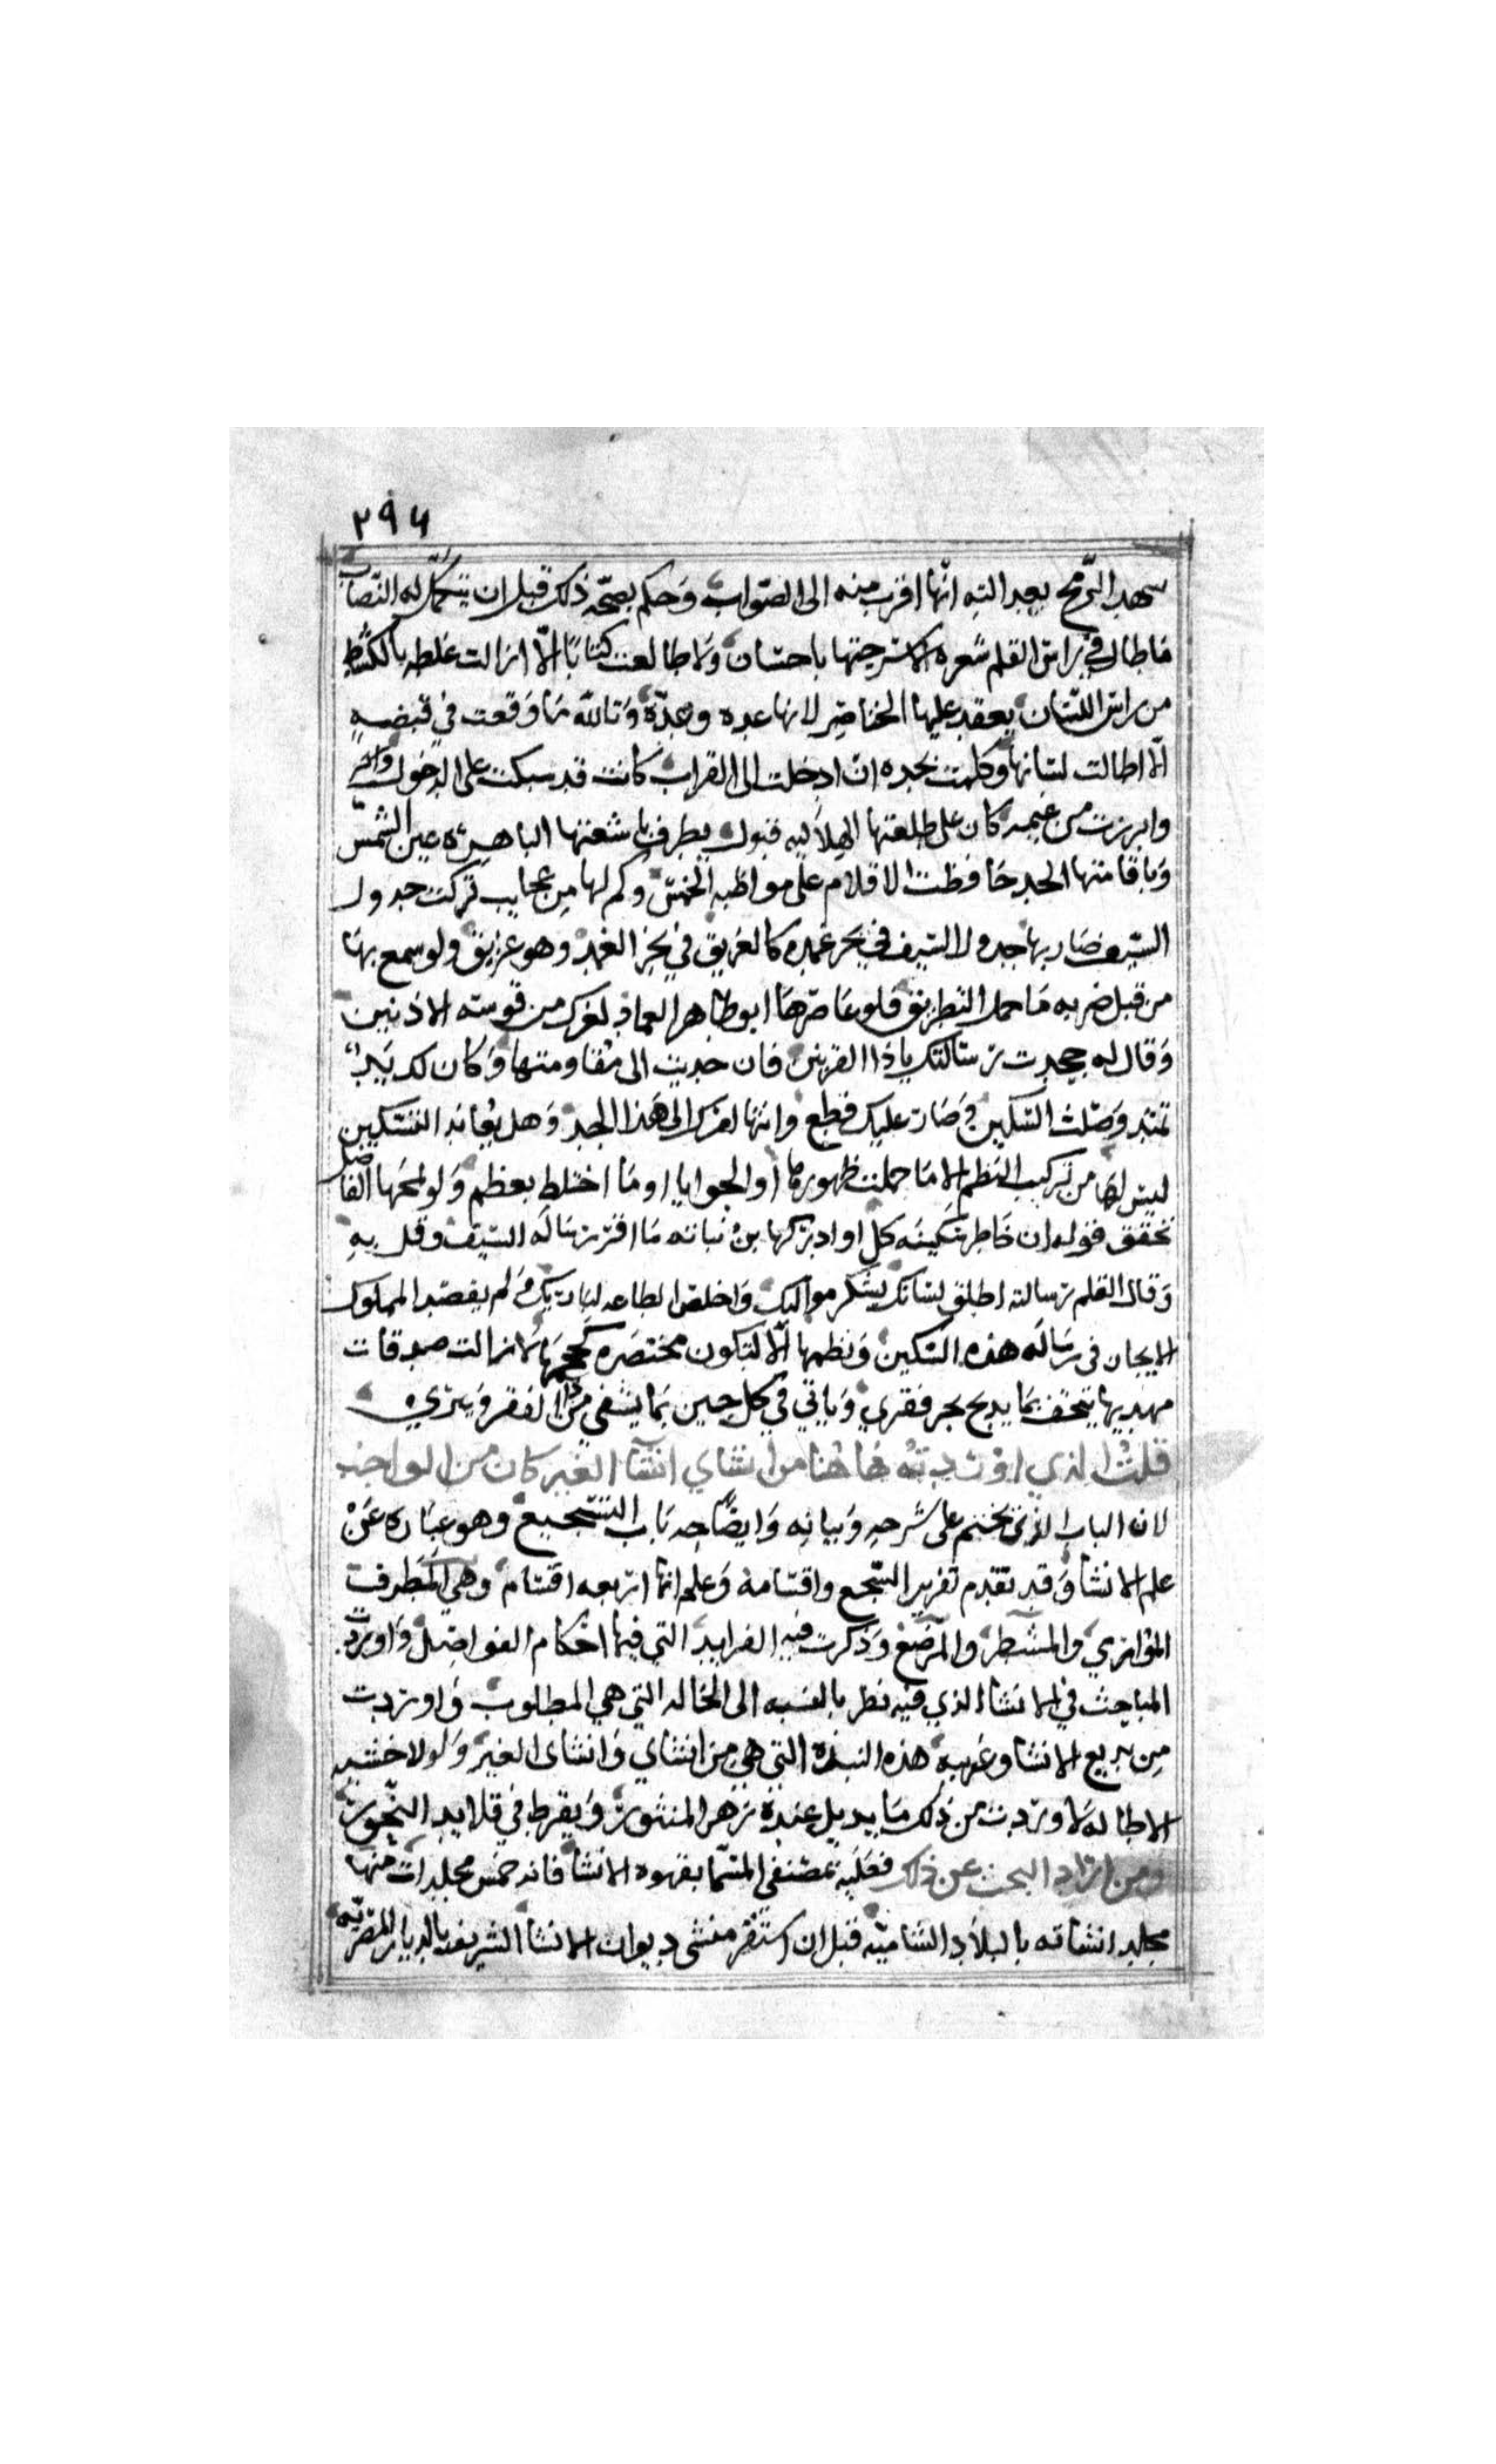 ٢٩٤
شهد الرمح بعد الته انها اقرب منه الى الصواب وحكم بصحة ذلك قبل ان يتكمل له النصاب
فاطال في راس القلم شعره الا سرحتها باحسان ولا طالعت كتابا الا ازالت غلطه بالكشط
من راس اللسان يعقد عليها الخناصر لانها عده وعدّة وتالله ما وقعت في قبضه
الا اطالت لسانها وكلمت بحده ان ادخلت الى القراب كانت قد سبكت على الدخول
وابرزت من غيمه كان على طلعتها الهلاليه قبول يطرف باشعتها الباهره عين الشمس
وباقامتها الحد حافظت الاقلام على مواظبه الخمس وكم لها من عجايب تركت جدول
السيف في بحر غمده كالغريق وهو غريق ولو سمع بها
من قبل ضربه ما حمل التطريق فلو عاصرها ابو طاهر لعرك من قوسه الاذنين
وقال له جحدت رسالتك ياذا القرنين فان جديت الى مقاومتها وكان لك يد
تمتد وصلت السكين وصار عليك قطع وانتهالفرك الى هذا الحد وهل يعاند السكين
ليس لها من تركيب النظم الا ما حملت ظهورها او الحوايا او ما اختلط بعظم ولو لمحها الفاضل
تحقق قوله ان خاطر سكينه كل او ادركها بن نباته ما اقر برساله السيف وقل به
وقال لقلم رسالته اطلق لسانك بشكر مواليك واخلص الطاعه لباريك ولم يقصد المملوك
الايجاز في رساله هذه السكين ونظمها الا لتكون مختصره كحجمها لا زالت صدقات
مهديها تتحف بما يدبح بحر فقري وياتي في كل حين بما يشفي من الفقر ويبري
قلت الذي اوردته هاهنا من انشاي وانشا الغير كان من الواجب
لان الباب الذي نختم على شرحه وبيانه وايضاحه باب التسجيع وهو عباره عن
علم الانشا وقد تقدم تقرير السجع واقسامه وعلم انها اربعه اقسام وهي المطرف
الموازي والمشطر والمرصع وذكرت فيه الفرايد التي فيها احكام الفواصل واوردت
المباحث في الانشاء الذي فيه نظر بالنسبه الى الحاله التي هي المطلوب واوردت
من بديع الانشا وغريبه هذه النبذه التي هي من انشاي وانشاى الغير ولولا خشيه
الاطاله لاوردت من ذلك ما يذبل عنده زهر المنثور ويفرط في قلايد النحور
ومن اراد البحث عن ذلك فعليه بمصنفي المسما بقهوه الانشا فانه خمس مجلدات منها
مجلد انشاته بالبلاد الشاميه قبل ان استقر منشى ديوان الانشا الشريف بالديار المصريه